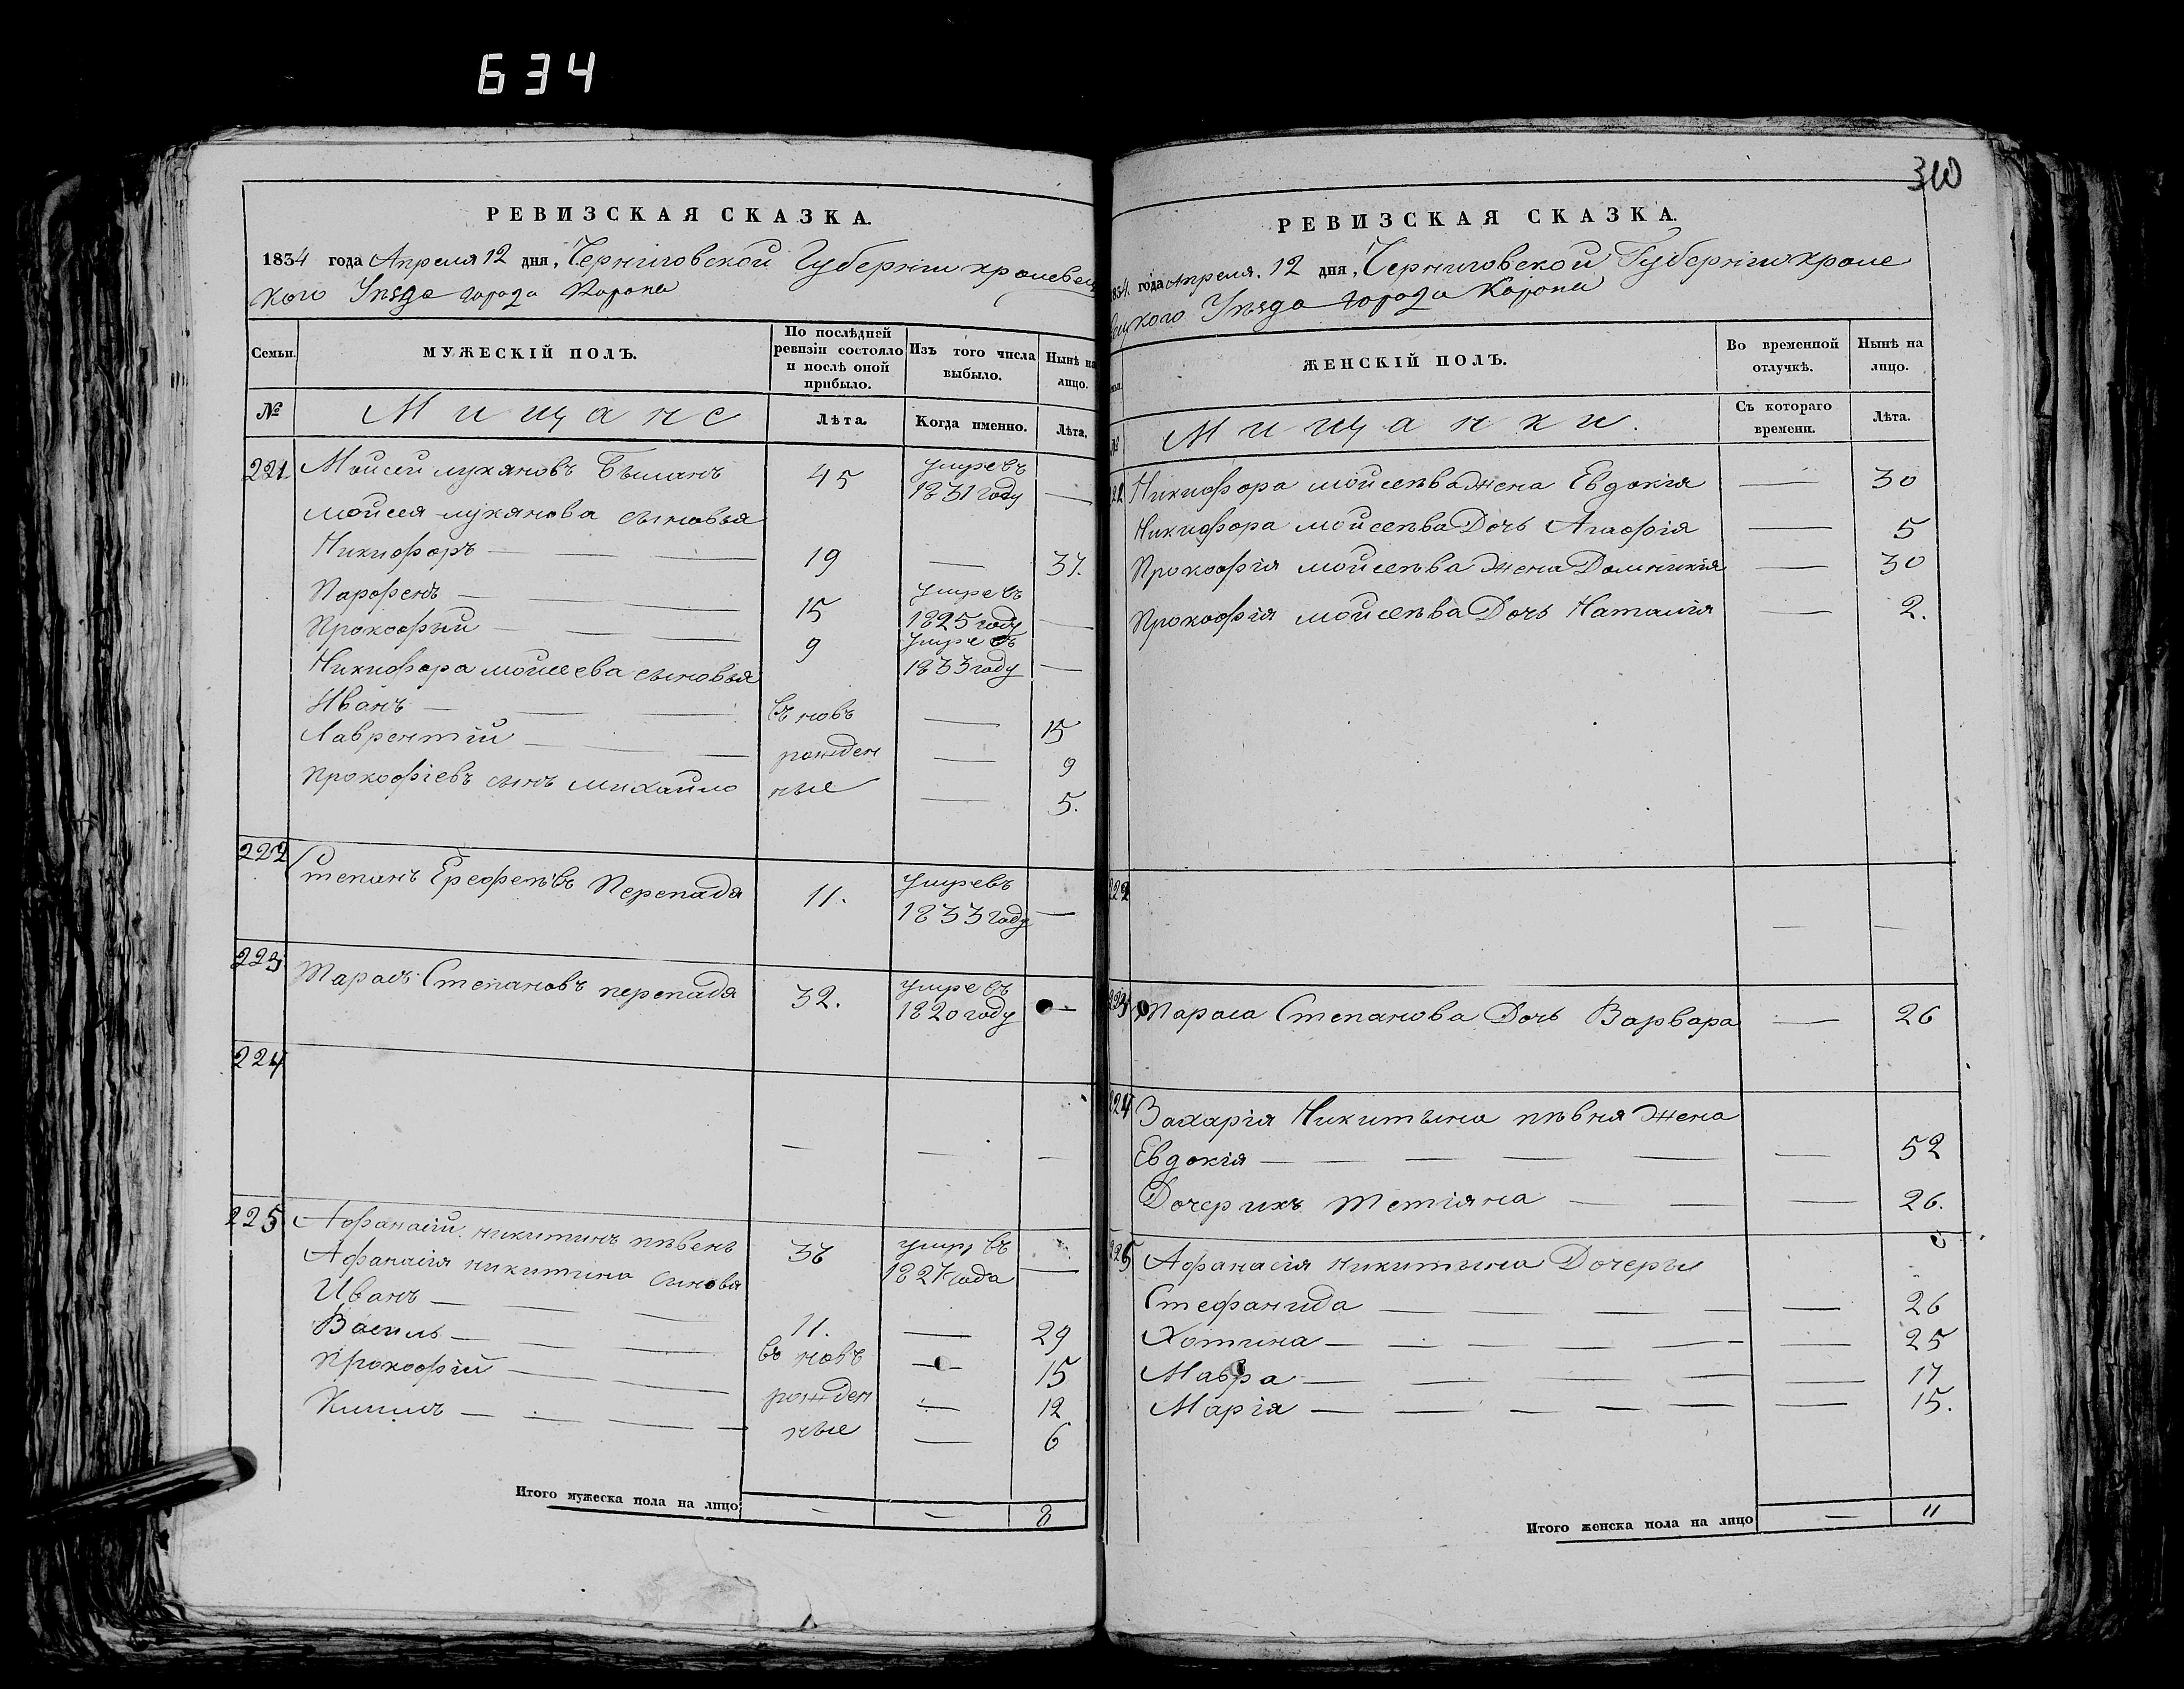 634
РЕВИЗСКАЯ СКАЗКА.
1834 года Апреля 12 дня, Черниговской Губернии кролевец
кого Уезда города Коропа
Семьи.
МУЖЕСКІЙ ПОЛЪ.
По послѣдней ревизіи состояло и послѣ оной прибыло.
Изъ того числа выбыло.
Нынѣ на лицо.
№
Мищане
Лѣта.
Когда именно.
Лѣта.
221 Мойсей лукяновъ 45 умре въ 1831 году —
мойсея лукянова сыновья
Никифоръ — 19 — 37.
Парфенъ — 15 умре въ 1825 году —
Прокофий — 9 умре въ 1833 году —
Никифора мойсеева сыновья
Иванъ — въ новъ — 15
Лаврентій — рожден — 9
Прокофіевъ сынъ михайло ные — 5.
222 Степанъ Ерефеѣвъ Перепадя 11. умре въ 1833 году —
223 Тарасъ Степановъ перепадя 32. умре въ 1820 году —
224 — — —
225 Афанасій никитинъ пѣвень 36 умр, въ 1827 года —
Афанасія никитина синовя
Иванъ — 11. — 29
Василь — въ новъ — 15
Прокофій — рожден — 12
ные — 6
Итого мужеска пола на лицо — — 8
310
РЕВИЗСКАЯ СКАЗКА.
1834. года Апреля. 12 дня, Черниговской Губернии кроле
вецкого Уезда города Коропа
Семьи
ЖЕНСКІЙ ПОЛЪ.
Во временной отлучкѣ.
Нынѣ на лицо.
№
Мищанки.
Съ котораго времени.
Лѣта.
221 Никифора мойсеѣва жена Евдокія — 30
Никифора мойсеѣва Дочь Агафія — 5
Прокофія мойсеѣва жена Домникія — 30
Прокофія мойсеѣва Дочь Наталія — 2.
222 — —
223 Тараса Степанова Дочь Варвара — 26
224 Захарія Никитина пѣвня жена
Евдокія — — 52
Дочер ихъ Тетіяна — — 26.
225 Афанасія никитина Дочеры
Стефанида — — 26
Хотина — — 25
Мавра — — 17
Марія — — 15.
Итого женска пола на лицо — 11